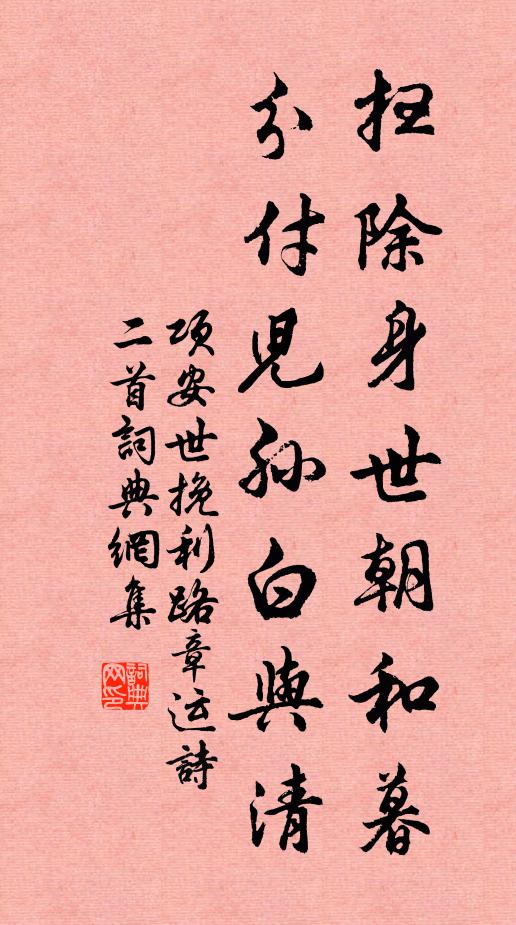 扫除身世朝和暮
分付児孙白與清
项安世挽利路章运詩
二首詞典網集
詞典网印